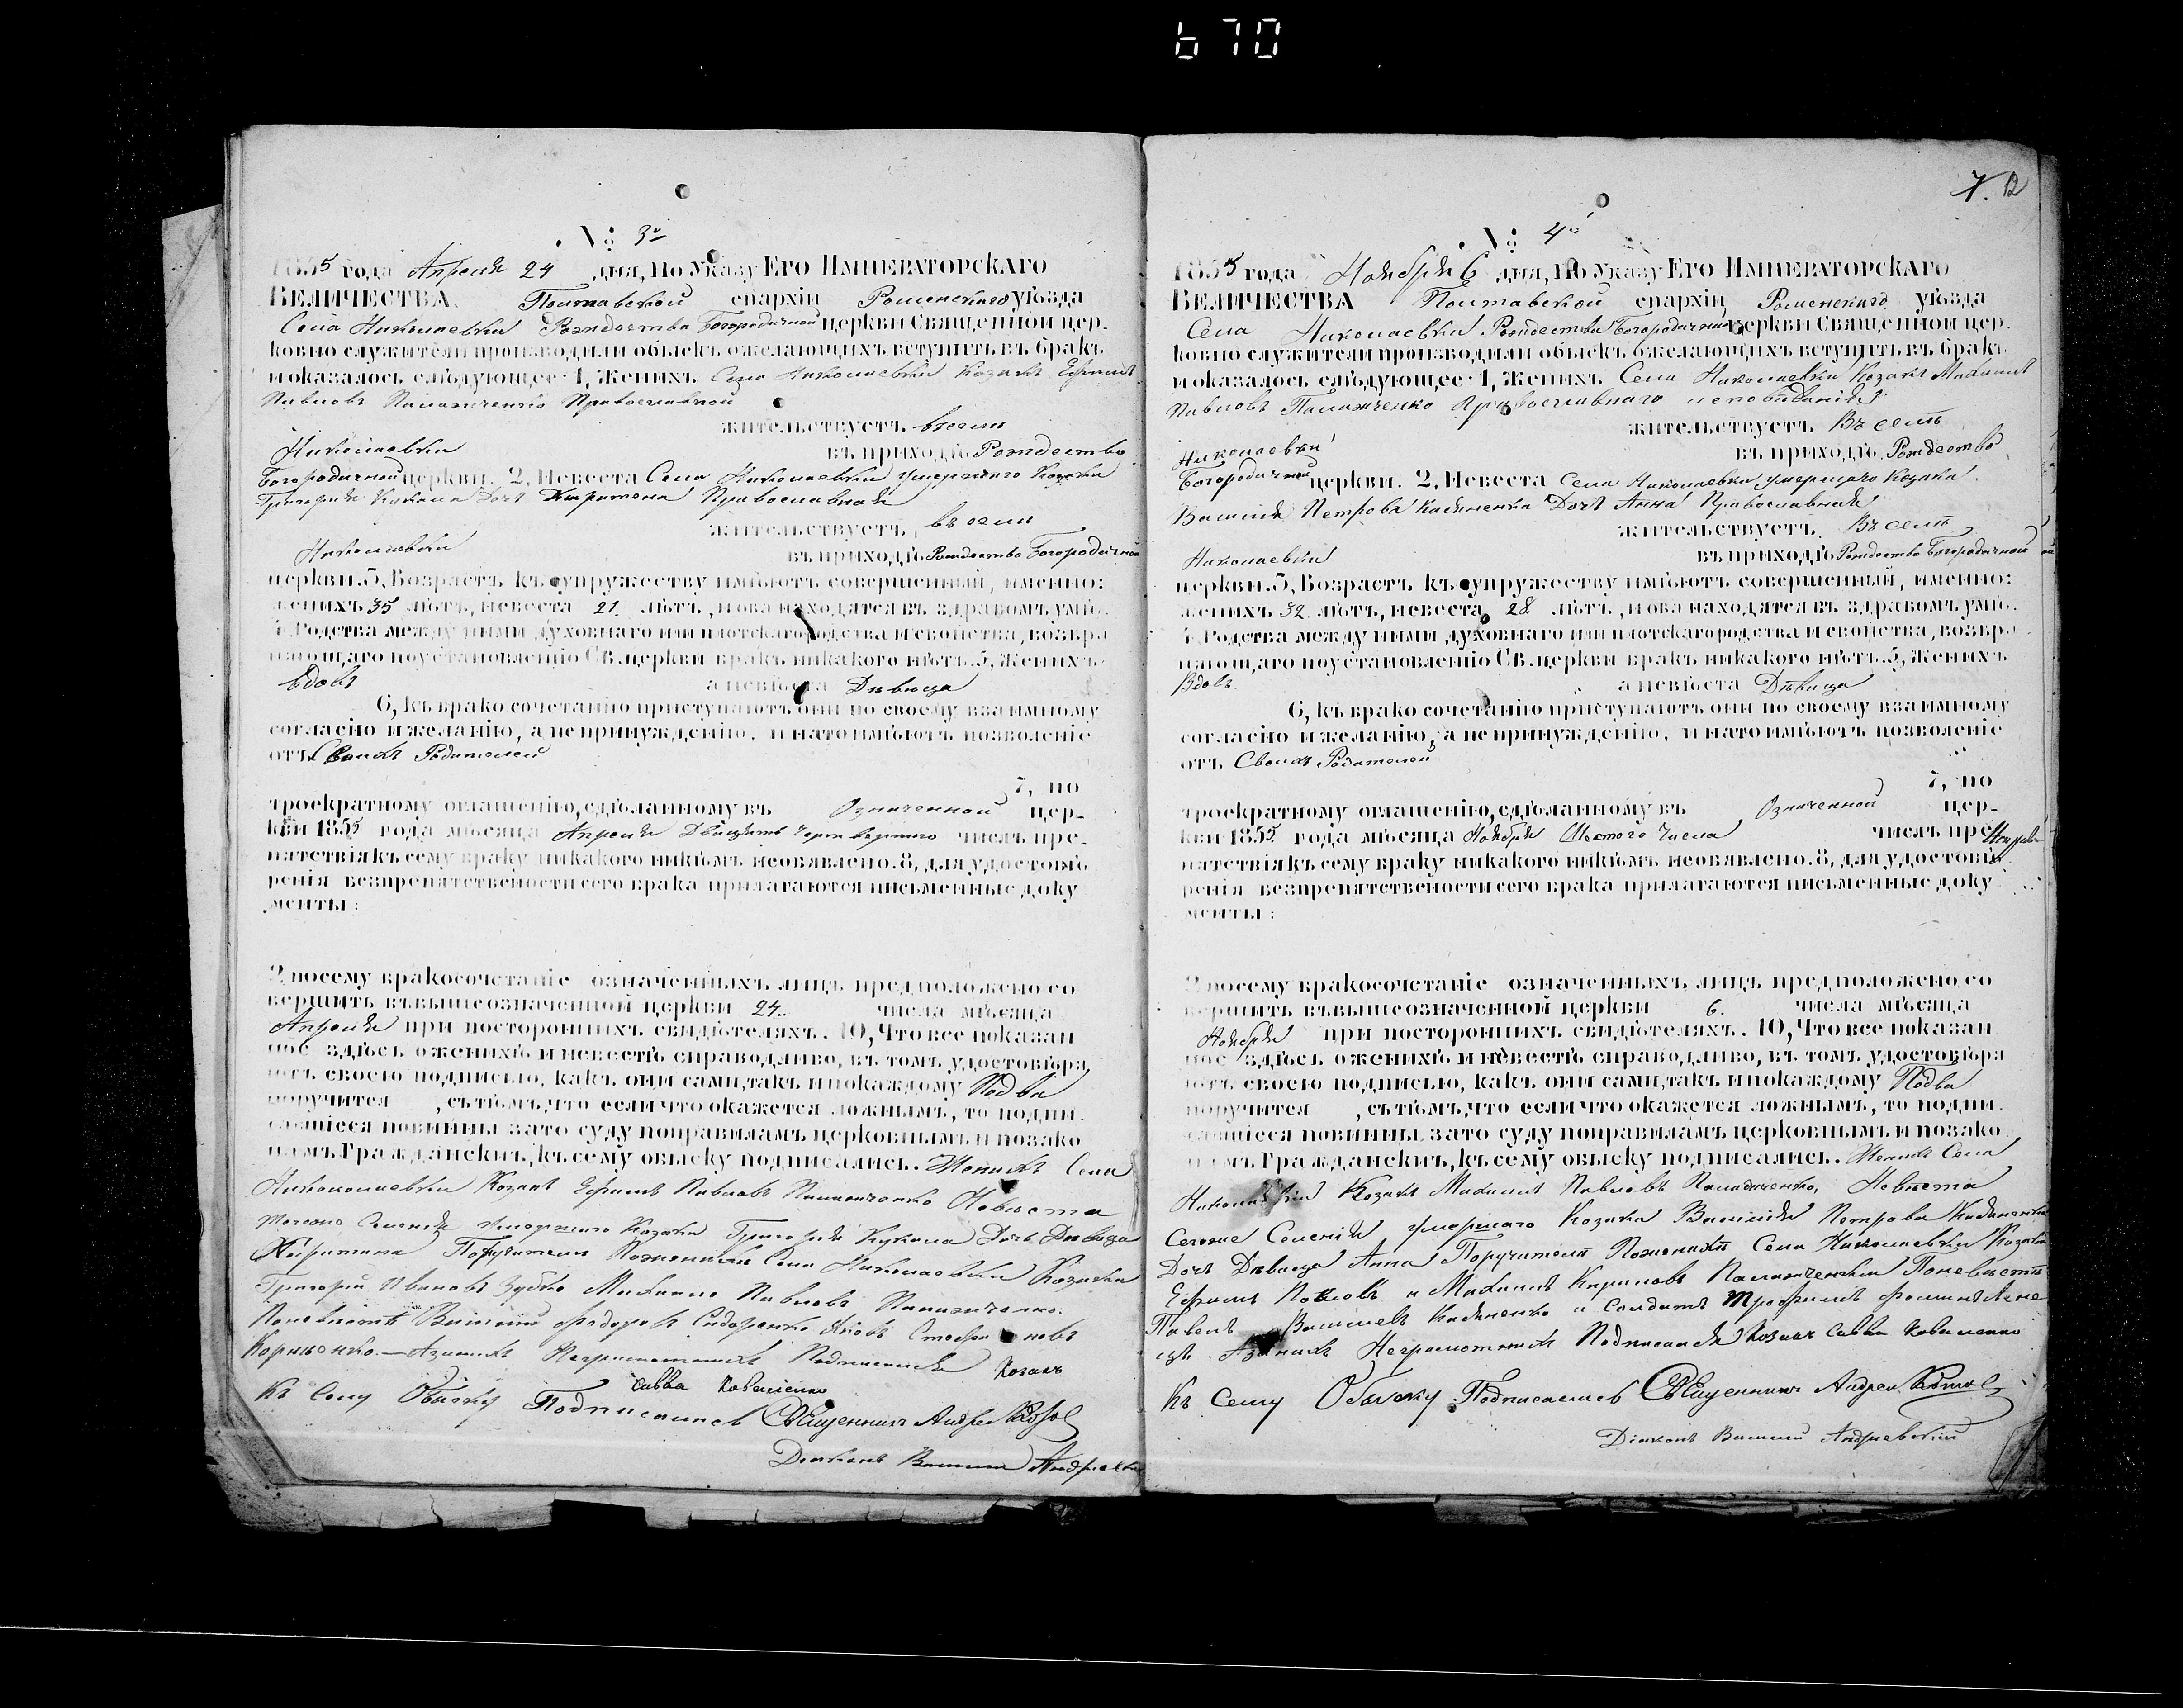 670
№ 3й
1855 года Апреля 24 дня, По Указу Его Императорскаго
Величества Полтавской епархіи Роменскаго уѣзда
Села Николаевки Рождество Богородичной церкви Священной цер-
ковно служители производили обыскъ ожелающихъ вступить въ бракъ
и оказалось слѣдующее 1, Женихъ Села Николаевки Козакъ Ефимъ
Павловъ Православной
жительствуетъ въ селѣ
Николаевки въ приходѣ Рождество
Богородичной церкви. 2, Невеста Села Николаевки умершего Козака
Григорія Кукала Дочь Харитина Православная
жительствуетъ въ селѣ
Николаевки въ приходѣ Рождество Богородичной
церкви. 3, Возрастъ къ супружеству имѣютъ совершенный, именно:
женихъ 35 лѣтъ, невеста 21 лѣтъ, и оба находятся въ здравомъ умѣ.
4, Родства между ними духовнаго или плотскаго родства и свойства, возбра
няющаго по установленію Св. церкви бракъ никакого нѣтъ. 5, Женихъ
вдовъ а невѣста Дѣвица
6, къ брако сочетанію приступаютъ они по своему взаимному
согласію и желанію, а не принужденію, и на то имѣютъ позволеніе
отъ Своихъ Родителей
7, по
троекратному оглашенію, сдѣланному въ Означенной цер-
кви 1855 года мѣсяца Апреля Двадцать четвертого числъ пре-
пятствія къ сему браку никакого никѣмъ необявлено. 8, для удостовѣ
ренія безпрепятствености сего брака прилагаются письменные доку
менты:
посему бракосочетаніе означенныхъ лицъ предположено со
вершить въ вышеозначенной церкви 24 числа мѣсяца
Апреля при постороннихъ свидѣтеляхъ. 10, Что все показан
ное здѣсь о женихѣ и невестѣ справодливо, въ томъ удостовѣря
ютъ своею подписью, какъ они сами, такъ и по каждому Подва
поручится, съ тѣмъ, что если что окажется ложнымъ, то подпи
савшіеся повинны за то суду по правиламъ церковнымъ и по зако
намъ Гражданскихъ, къ сему обыску подписались. Женихъ Села
Козакъ Ефимъ Павловъ Невѣста
умершего Козака Григорія Кукала Дочь Дѣвица
Харитина Поручители Села Николаевки Козаки
Григорій Ивановъ Зубко Михаило Павловъ
Василій Федоровъ Сидоренко Яковъ
Неграмотныхъ Подписался Козакъ
Савва Коваленко
Къ Сему Обыску Подписались Священникъ Андрей
Діаконъ Василій
7. 12
№ 4й
1855 года Ноября 6 дня, По Указу Его Императорскаго
Величества Полтавской епархіи Роменскаго уѣзда
Села Николаевки Рождество Богородичной церкви Священной цер-
ковно служители производили обыскъ ожелающихъ вступить въ бракъ
и оказалось слѣдующее 1, Женихъ Села Николаевки Козакъ Михаилъ
Павловъ Православнаго исповѣданія
жительствуетъ Въ селѣ
Николаевки въ приходѣ Рождество
Богородичной церкви. 2, Невеста Села Николаевки умершаго Козака
Василія Петрова Дочь Анна Православная
жительствуетъ Въ селѣ
Николаевки въ приходѣ Рождество Богородичной
церкви. 3, Возрастъ къ супружеству имѣютъ совершенный, именно:
женихъ 32 лѣтъ, невеста 28 лѣтъ, и оба находятся въ здравомъ умѣ.
4, Родства между ними духовнаго или плотскаго родства и свойства, возбра
няющаго по установленію Св. церкви бракъ никакого нѣтъ. 5, Женихъ
Вдовъ а невѣста Дѣвица
6, къ брако сочетанію приступаютъ они по своему взаимному
согласію и желанію, а не принужденію, и на то имѣютъ позволеніе
отъ Своихъ Родителей
7, по
троекратному оглашенію, сдѣланному въ Означенной цер-
кви 1855 года мѣсяца Ноября Шестого Числа числъ пре
пятствія къ сему браку никакого никѣмъ необявлено. 8, для удостовѣ
ренія безпрепятствености сего брака прилагаются письменные доку
менты:
посему бракосочетаніе означенныхъ лицъ предположено со
вершить въ вышеозначенной церкви 6. числа мѣсяца
Ноября при постороннихъ свидѣтеляхъ. 10, Что все показан
ное здѣсь о женихѣ и невестѣ справодливо, въ томъ удостовѣря
ютъ своею подписью, какъ они сами, такъ и по каждому Подва
поручится, съ тѣмъ, что если что окажется ложнымъ, то подпи
савшіеся повинны за то суду по правиламъ церковнымъ и по зако
намъ Гражданскихъ, къ сему обыску подписались. Женихъ Села
Козакъ Михаилъ Павловъ Невѣста
умершаго Козака Василія Петрова
Дочь Дѣвица Анна Поручители Села Николаевки Козаки
Ефимъ Павловъ и Михаилъ Кириловъ
Павелъ Васильевъ и Солдатъ Трофимъ
Неграмотныхъ Подписался Козакъ Савва Коваленко
Къ Сему Обыску Подписались Священникъ Андрей
Діаконъ Василій Андріевскій